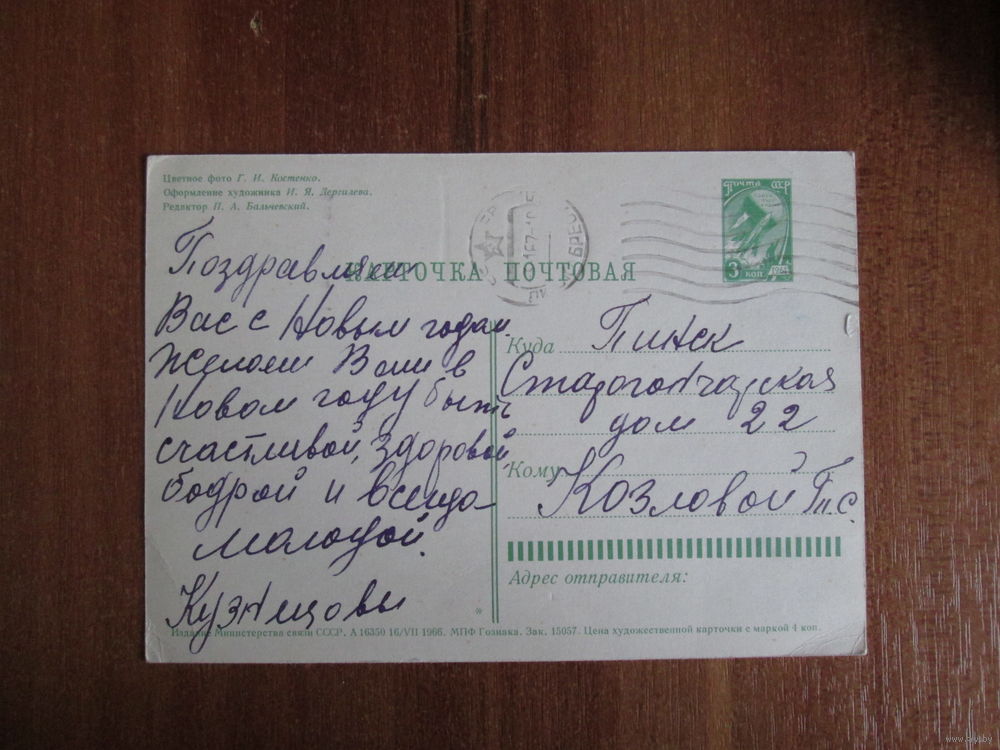 Цветное фото Г. И. Костенко.
Оформление художника И. Я. Дергилева.
Редактор П. А. Бальчевский.
ПОЧТА СССР
3 коп.
1961
БРЕСТ
КАРТОЧКА ПОЧТОВАЯ
Поздравляем
Вас с Новым годом.
Желаем Вам в
Новом году быть
счастливой, здоровой,
бодрой и всегда
молодой.
Кузнецовы
Куда Пинск
Старогончарская
дом 22
Кому Козловой
Адрес отправителя:
Издание Министерства связи СССР. А 16350 16/VII 1966. МПФ Гознака. Зак. 15057. Цена художественной карточки с маркой 4 коп.